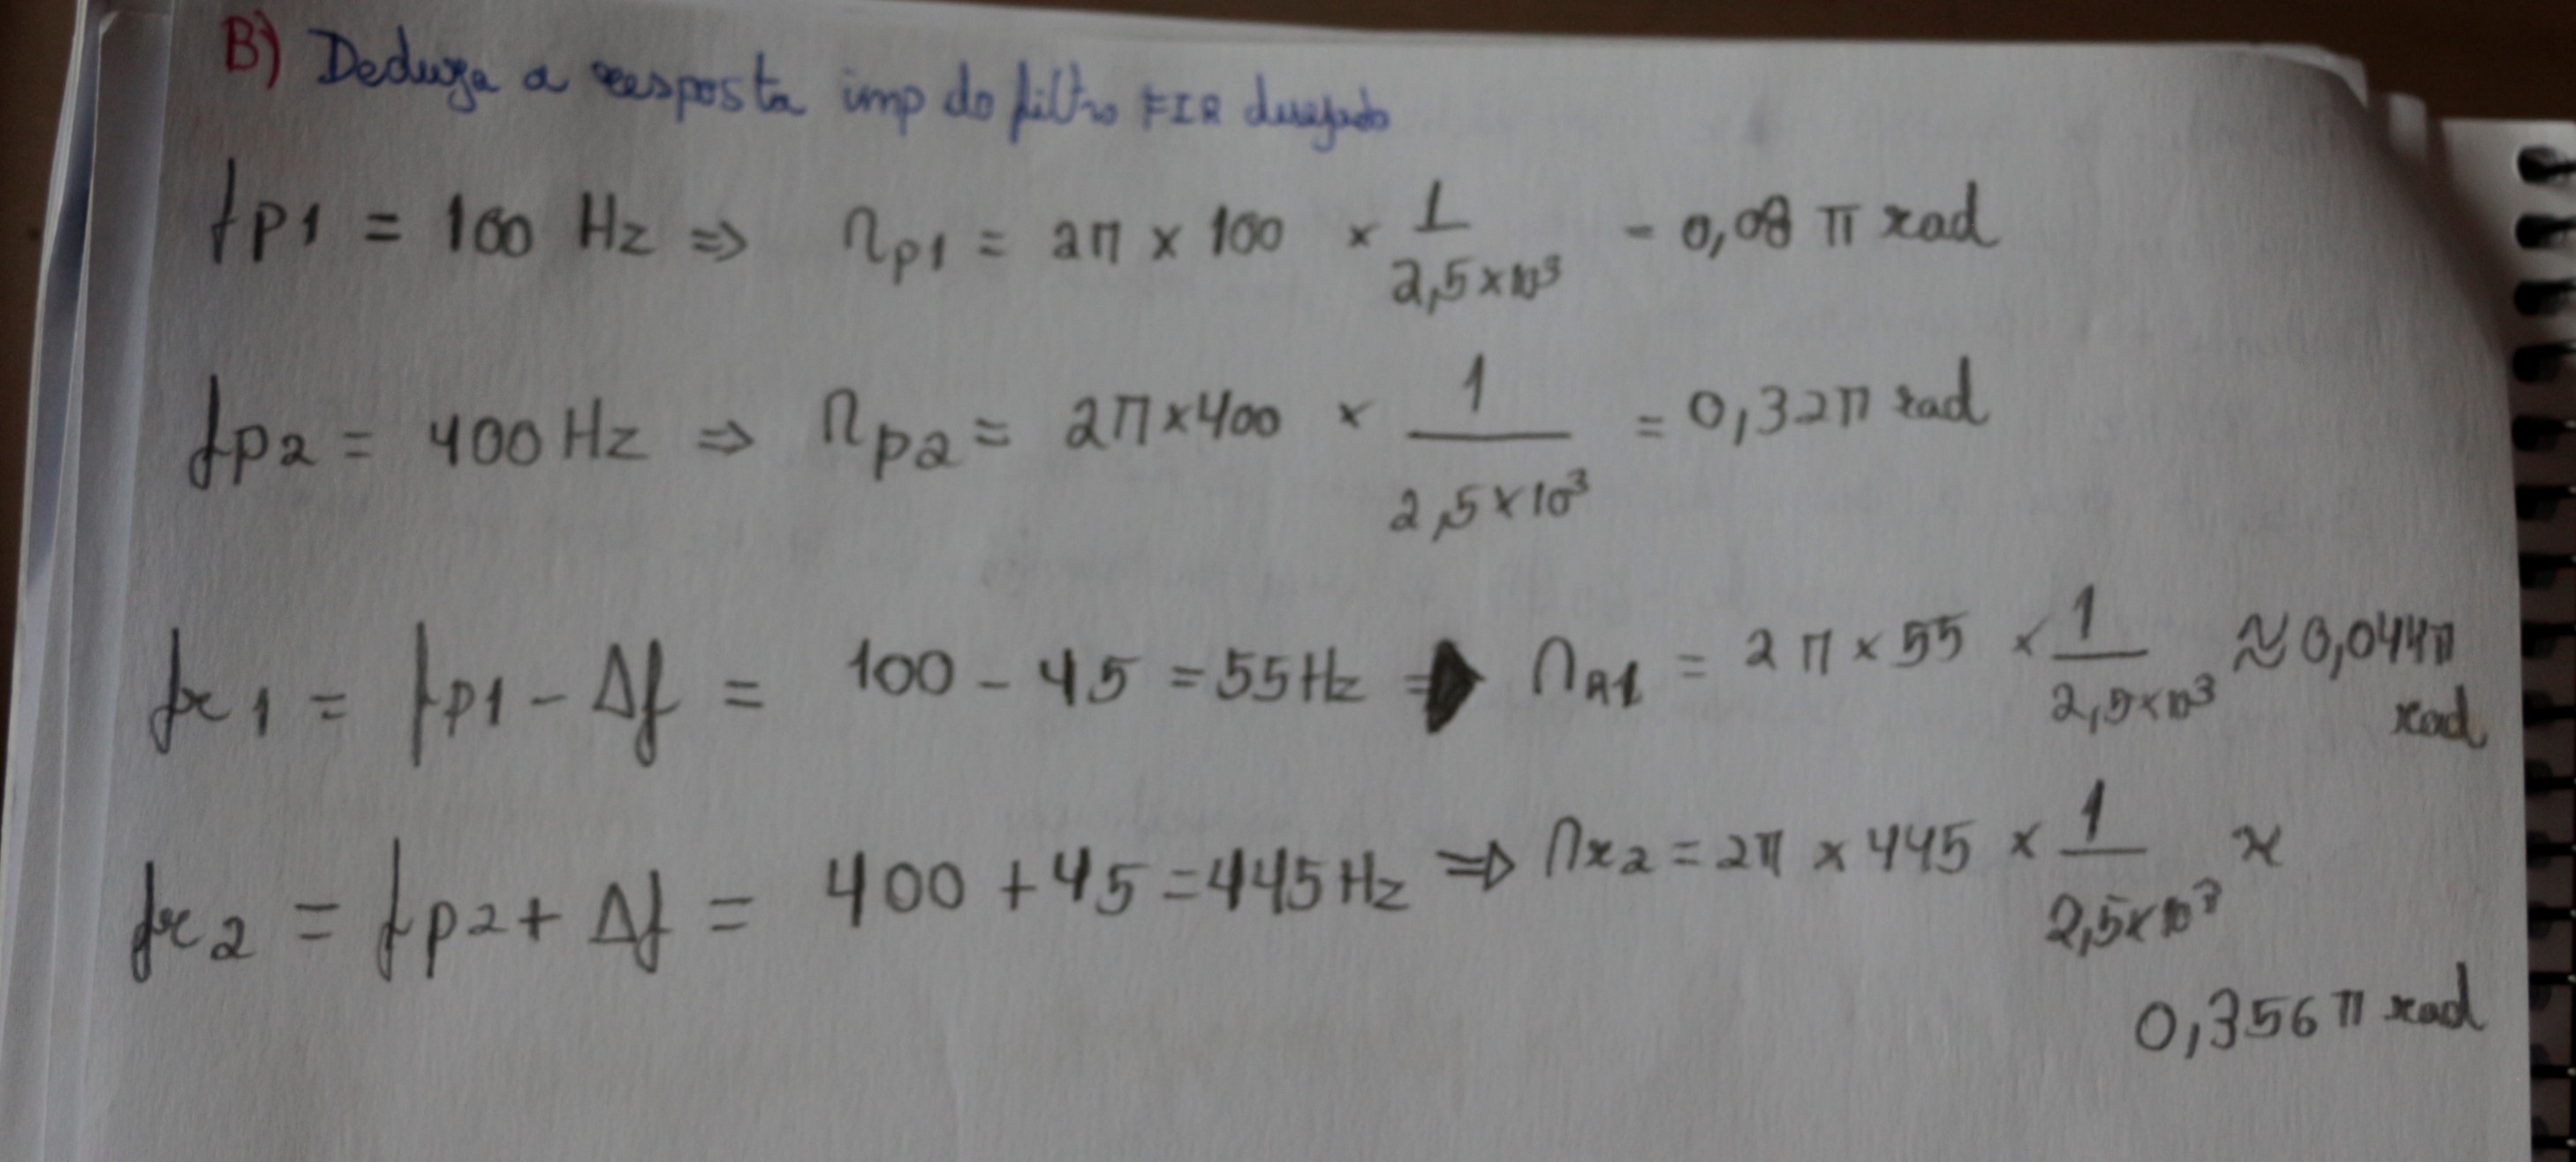 B) Deduza a resposta imp do filtro FIR desejado
fp1 = 100 Hz ⇒ Ωp1 = 2π × 100 × 1/2,5×10³ = 0,08 π rad
fp2 = 400 Hz ⇒ Ωp2 = 2π×400 × 1/2,5×10³ = 0,32π rad
fr1 = fp1 - Δf = 100 - 45 = 55 Hz ⇒ ΩR1 = 2π × 55 × 1/2,5×10³ ≈ 0,044π
rad
fr2 = fp2 + Δf = 400 + 45 = 445 Hz ⇒ Ωr2 = 2π × 445 × 1/2,5×10³ ≈
0,356 π rad